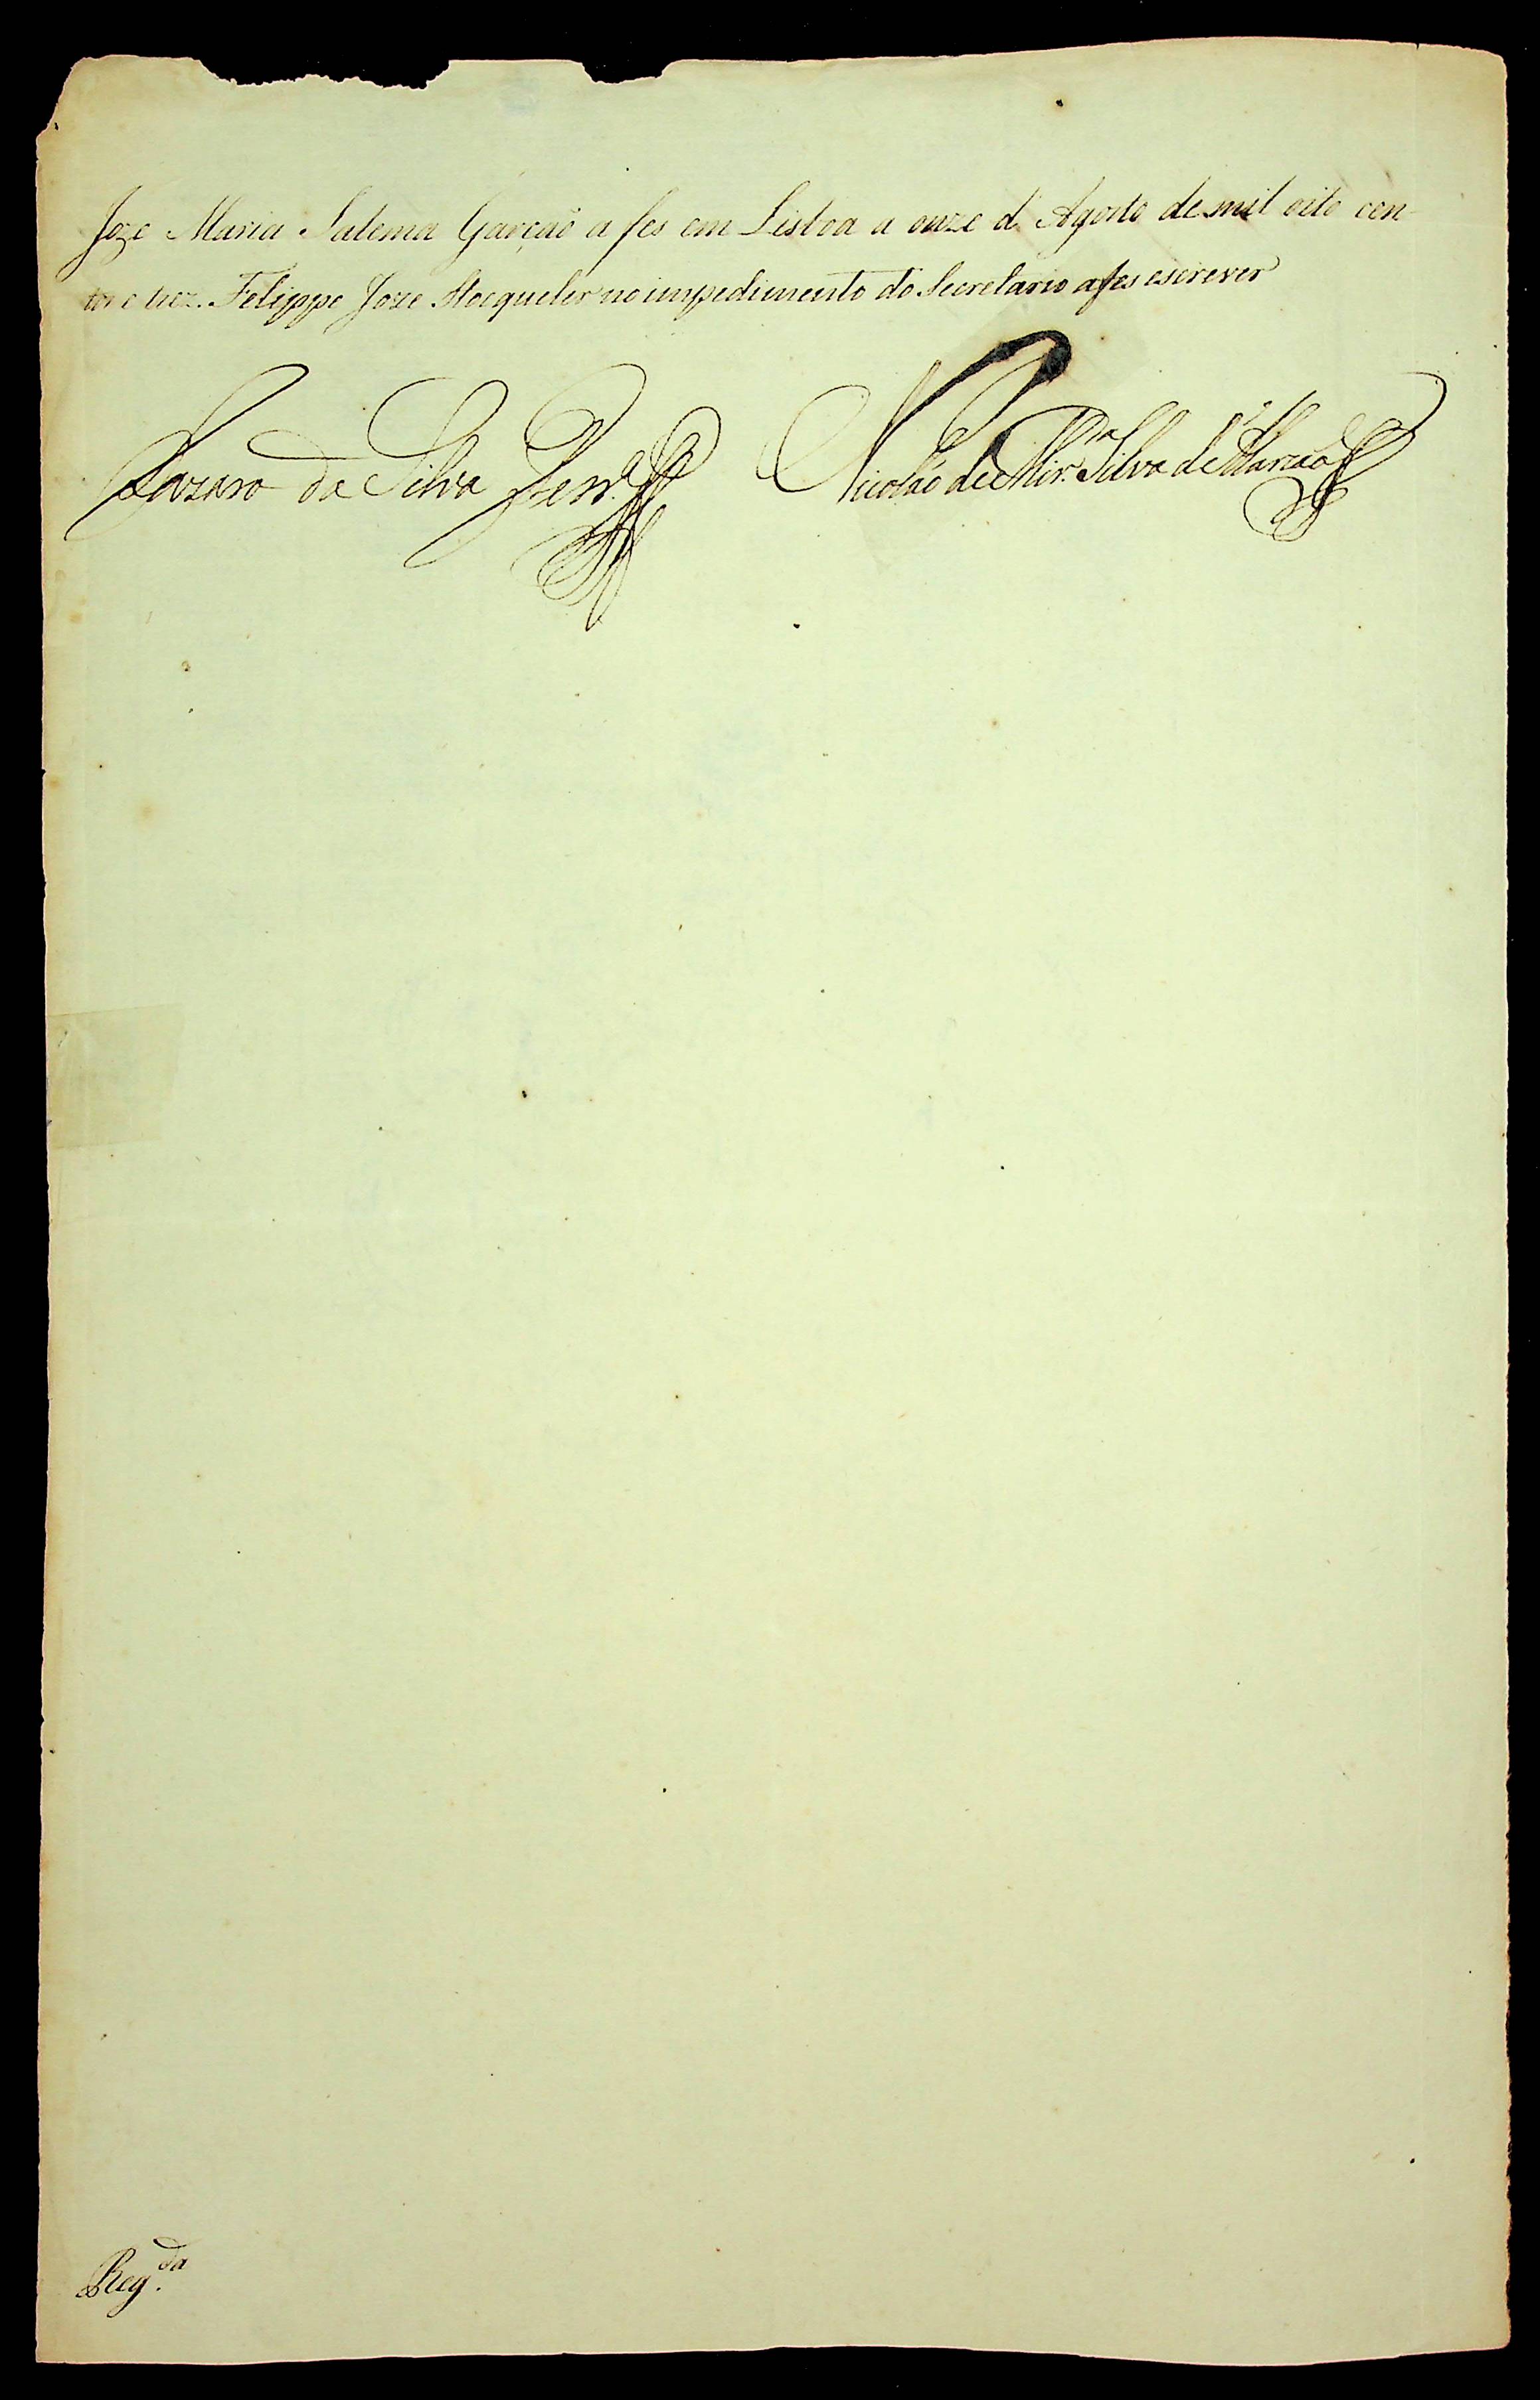 Joze Maria Salema Garçaõ a fes em Lisboa a onze d' Agosto de mil oito cen-
tos e trez. Felippe Joze Stocqueler no impedimento do Secretario a fes escrever
Lazaro da Silva Ferr.ª Nicoláo de Mir.da Silva d' Alarcaõ
Reg.da